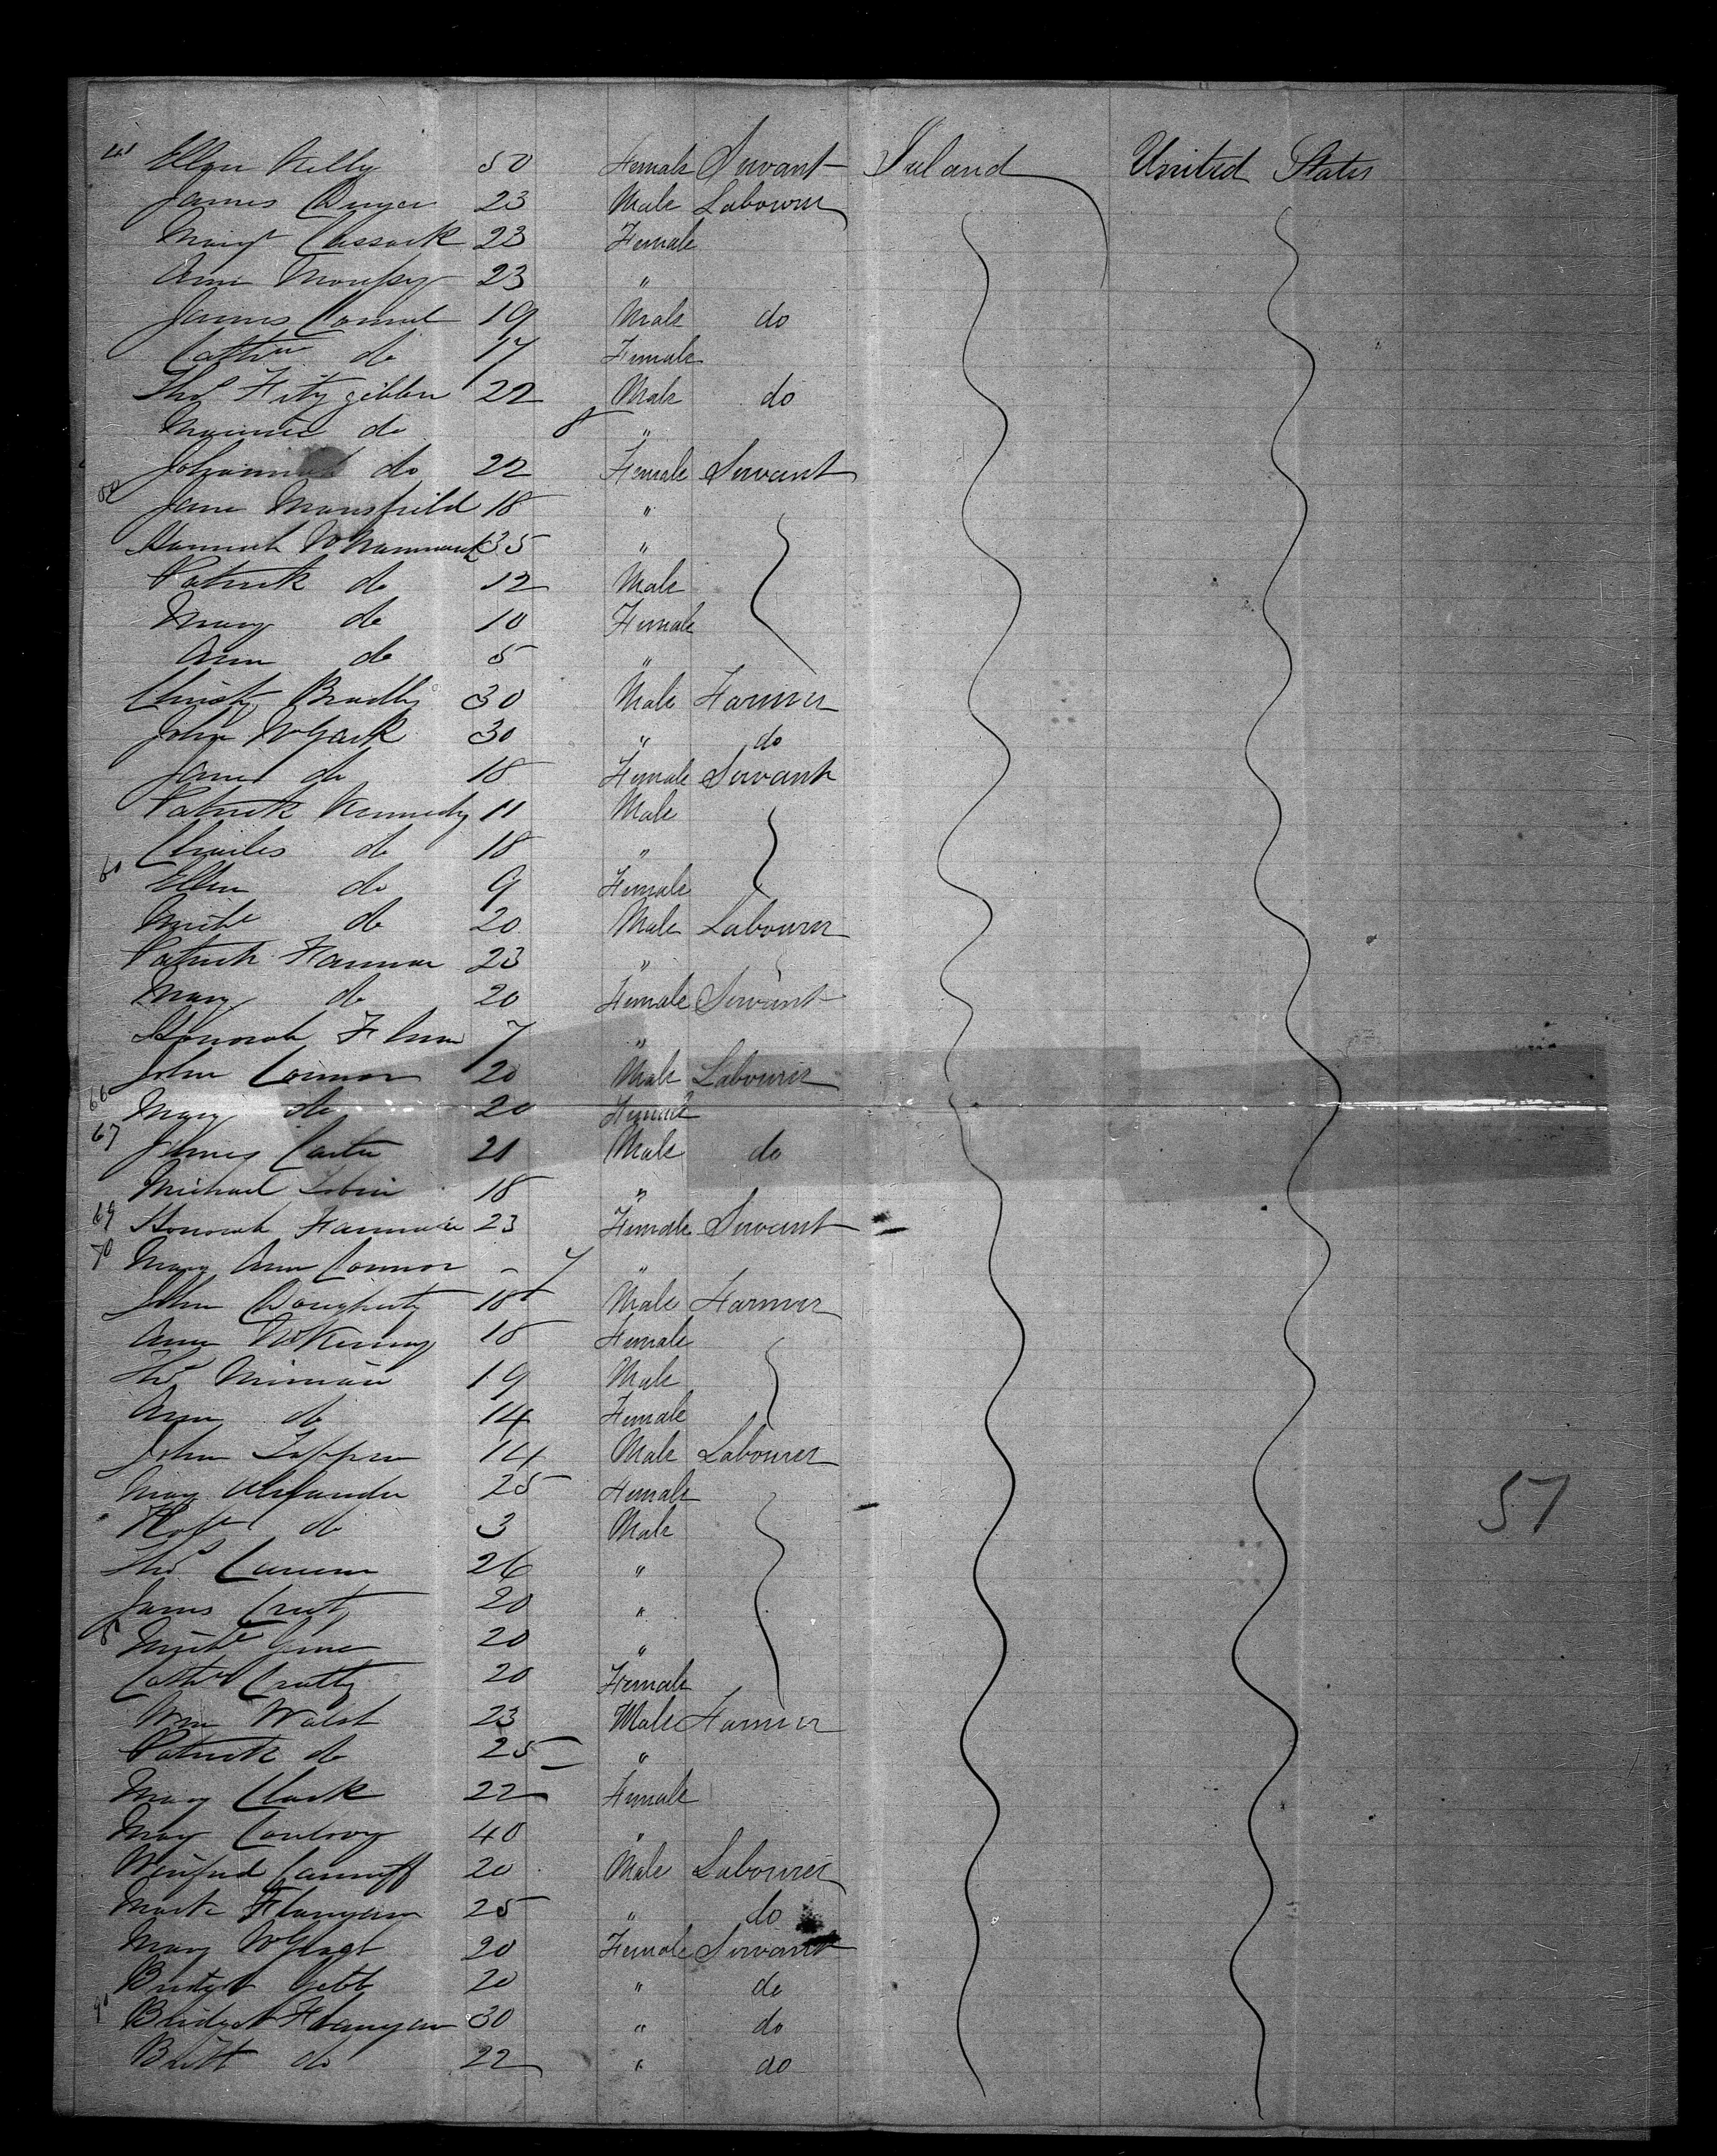 Ellen Kelly 50 Female Servant Ireland United States
James Dwyer 23 Male Labourer
Margt Cussack 23 Female
Ann 23 "
James Connel 19 Male do
Cathne do 17 Female
Thos Fitzgibbon 22 Male do
Maurice do 8 "
Johannah do 22 Female Servant
Jane Mansfield 18 "
Hannah McNammark 35 "
Patrick do 12 Male
Mary do 10 Female
Ann do 5 "
Christy Bradly 30 Male Farmer
John 30 " do
Jane do 18 Female Servant
Patrick Kennedy 11 Male
Charles do 18 "
60 Ellen do 9 Female
Michl do 20 Male Labourer
Patrick Hannon 23 "
Mary do 20 Female Servant
Honorah 7 "
John Connor 20 Male Labourer
66 Mary do 20 Female
67 James Carter 21 Male do
Michael Tobin 18 "
69 Honorah 23 Female Servant
70 Mary Ann Connor - 7 "
John Dougherty 18 Male Farmer
Ann 18 Female
Thos 19 Male
Ann do 14 Female
John 14 Male Labourer
Mary Alexander 25 Female
Robt do 3 Male
Thos 26 "
James 20 "
80 Michl 20 "
Cathe Cratty 20 Female
Wm Walsh 23 Male Farmer
Patrick do 25 "
Mary Clark 22 Female
Mary Conlroy 40 "
Winifred 20 Male Labourer
Mark Flanigan 25 " do
Mary 20 Female Servant
Bridget 20 " do
90 Bridget Flanigan 30 " do
Britt do 22 " do
57